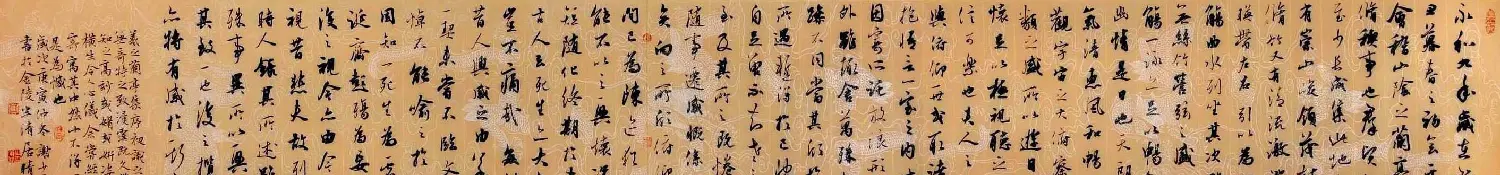 永和九年歲在
丑暮春之初會
會稽山陰之蘭亭
脩禊事也羣賢
至少長咸集此地
有崇山峻領茂
脩竹又有清流激
暎帶左右引以為
觴曲水列坐其次
無絲竹管弦之盛
觴一詠亦足以暢
幽情是日也天朗
氣清惠風和暢
觀宇宙之大俯察
類之盛所以遊目
懷足以極視聽之
信可樂也夫人之
與俯仰一世或取諸
抱悟言一室之內
因寄所託放浪形
外雖趣舍萬殊
躁不同當其欣
所遇暫得於己快
自足不知老之
至及其所之既惓
隨事遷感慨係
矣向之所欣俯仰
間已為陳迹猶
能不以之興懷
短隨化終期於
古人云死生亦大
豈不痛哉每
昔人興感之由
一契未嘗不臨文
悼不能喻之於
固知一死生為
誕齊彭殤為妄
後之視今亦由今
視昔悲夫故列
時人錄其所述雖
殊事異所以興
其致一也後之攬
亦將有感於斯
是為識也